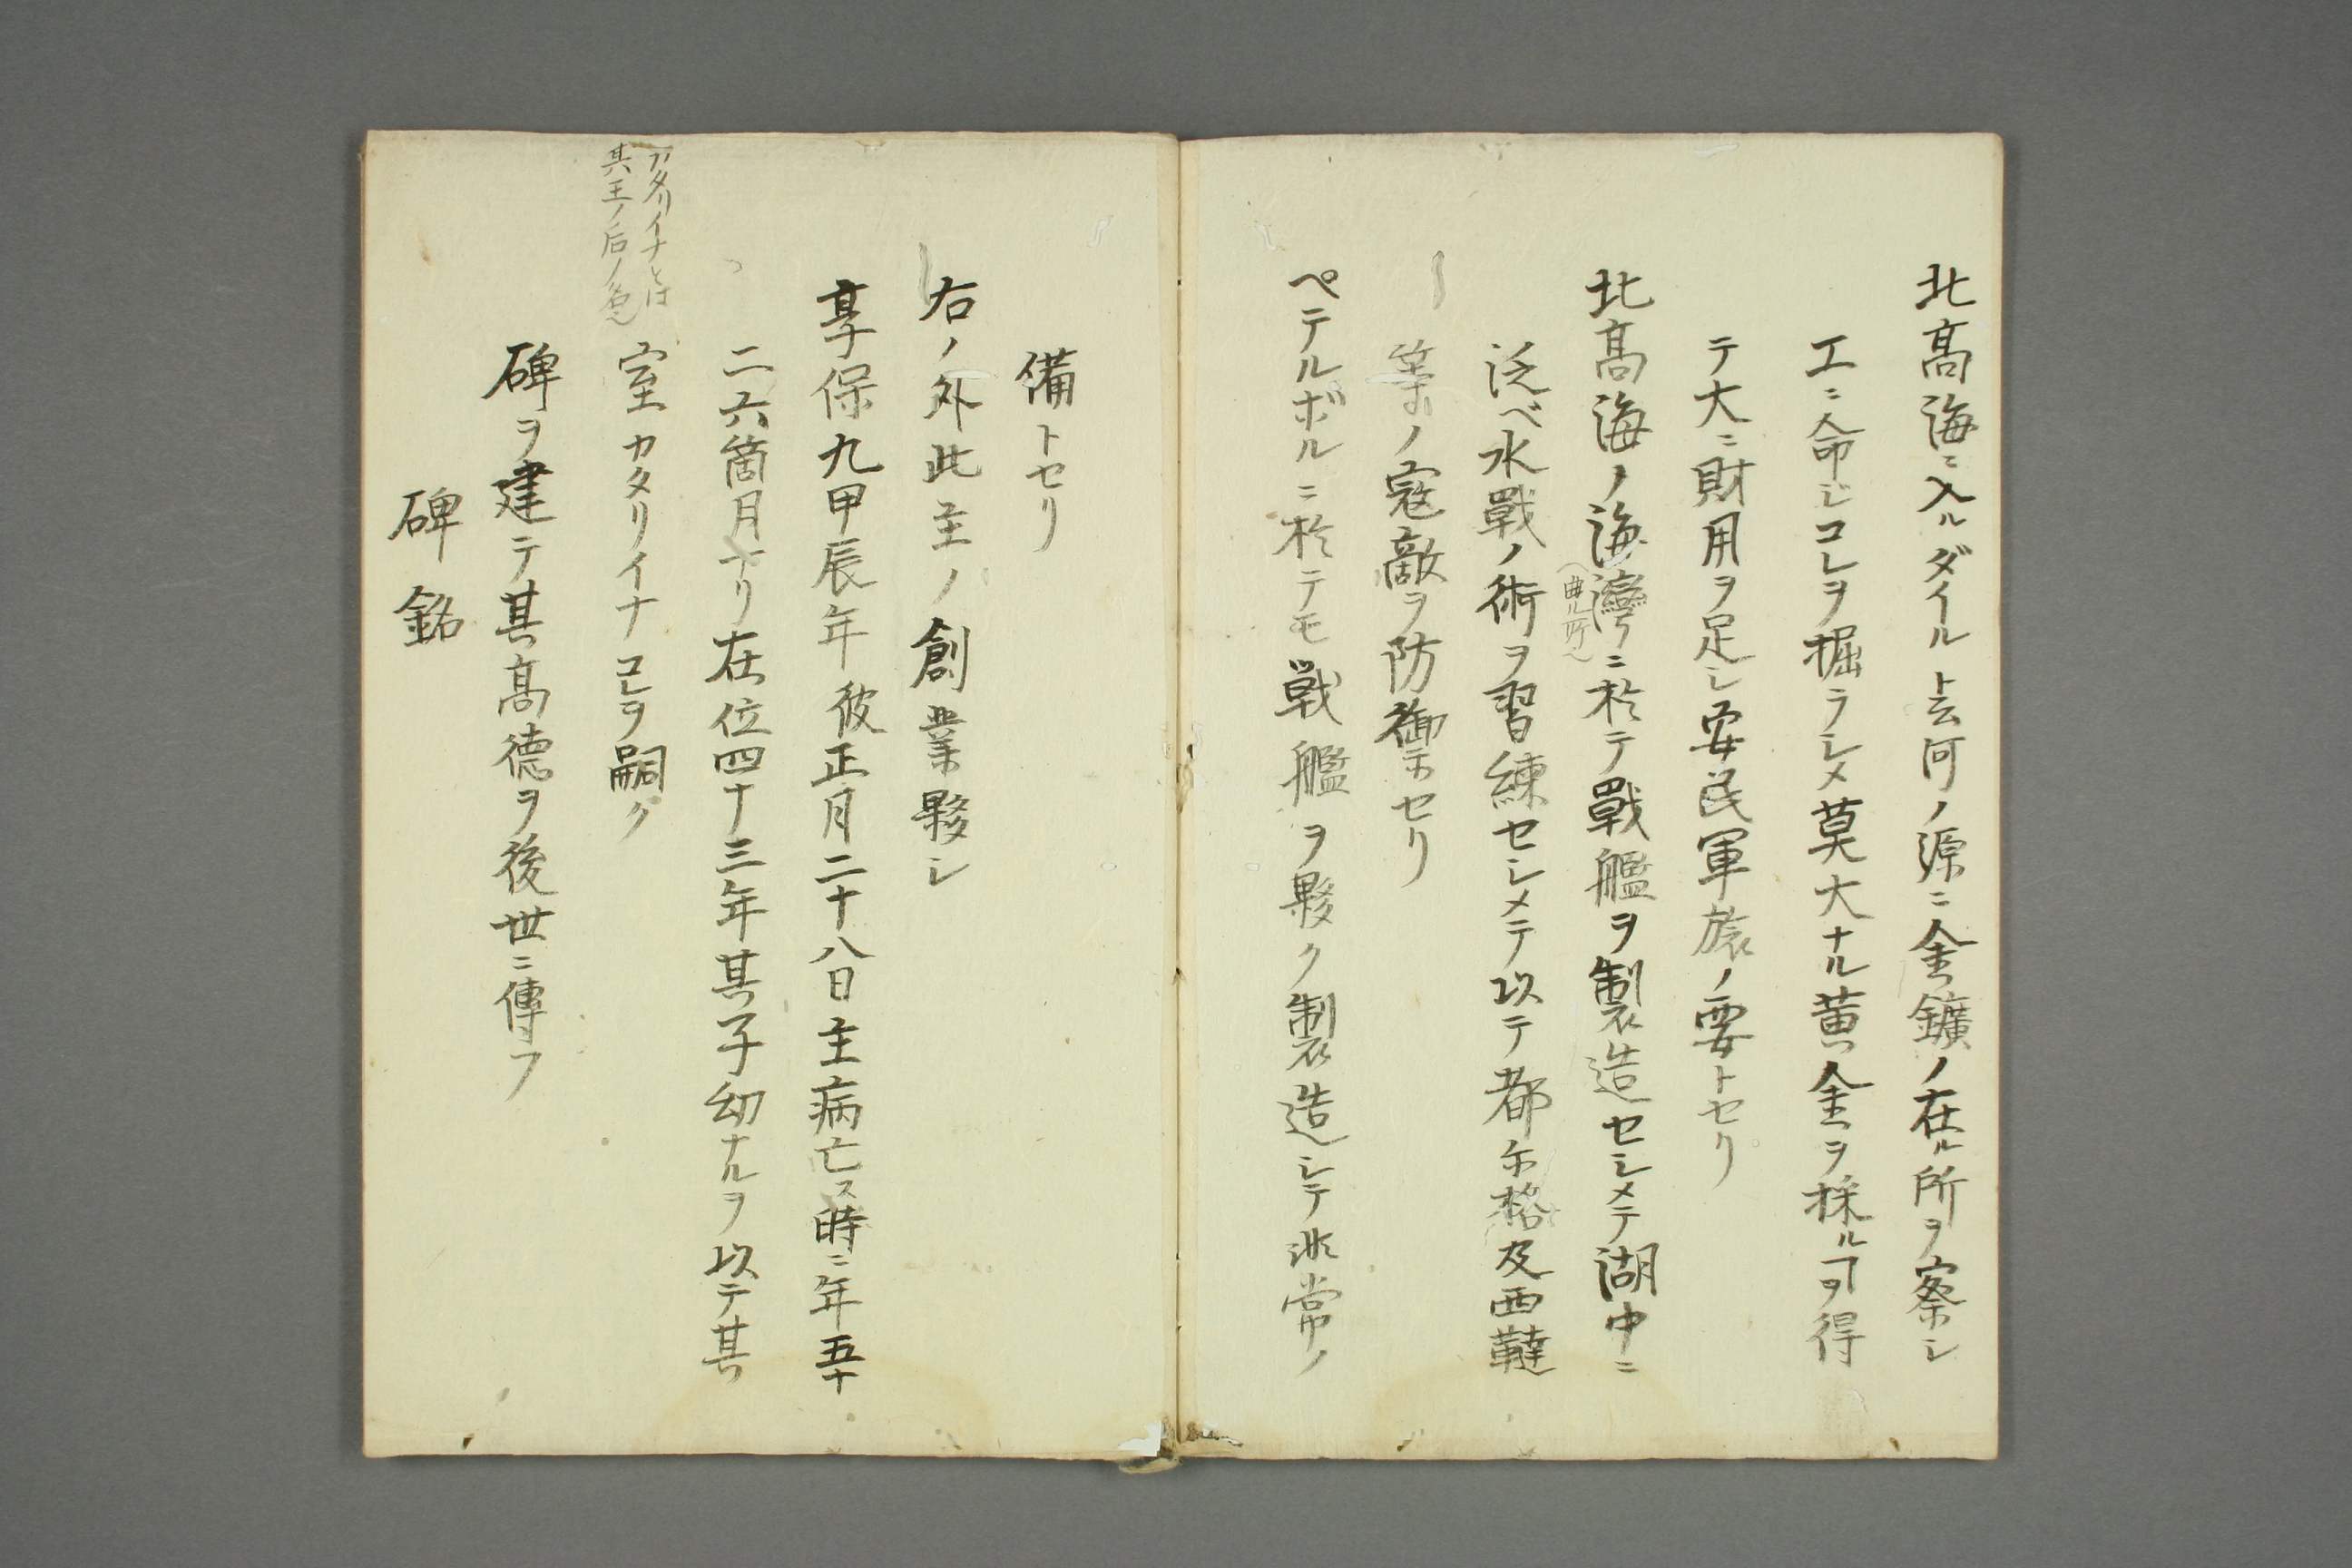 北高海ニ入ルダイルト云河ノ源ニ金鑛ノ在ル所ヲ察シ
工ニ命ジコレヲ掘ラシメ莫大ナル黄金ヲ採ルヿヲ得
テ大ニ財用ヲ足シ安民軍旅ノ要トセリ
北高海ノ海灣ニ於テ戰艦ヲ製造セシメテ湖中ニ
曲ル所
泛べ水戰ノ術ヲ習練セシメテ以テ都尓格及西韃
等ノ寇敵ヲ防禦セリ
ペテルボルニ於テモ戦艦ヲ夥ク製造シテ非常ノ
備トセリ
右ノ外此主ノ創業夥シ
享保九甲辰年彼正月二十八日主病亡ス時ニ年五十
二六箇月ナリ在位四十三年其子幼ナルヲ以テ其
カタリイナとは
其王ノ后ノ名
室カタリイナコレヲ嗣グ
碑ヲ建テ其高德ヲ後世ニ傳フ
碑銘